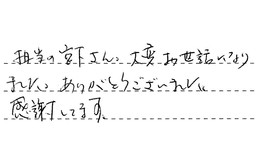 担当の宮下さん、大変お世話になり
ました。ありがとうございました。
感謝してます。